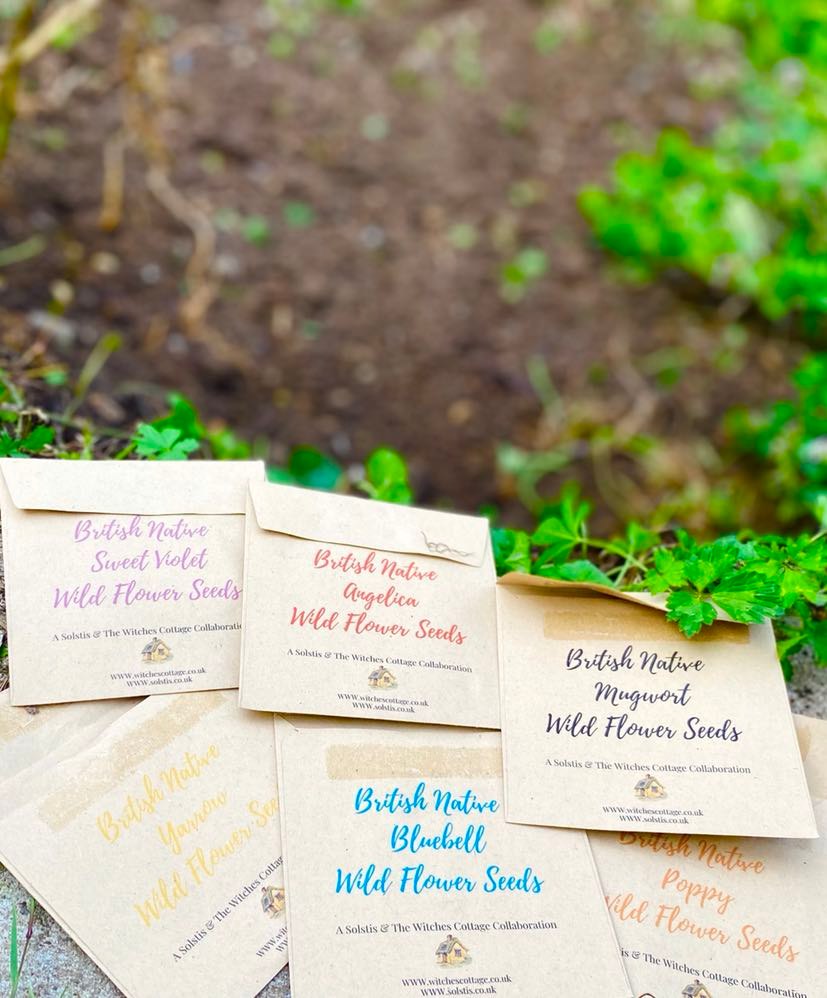 British Native
Sweet Violet
Wild Flower Seeds
A Solstis & The Witches Cottage
www.witchescottage.co.uk
www.solstis.co.uk
British Native
Angelica
Wild Flower Seeds
A Solstis & The Witches Cottage Collaboration
www.witchescottage.co.uk
www.solstis.co.uk
British Native
Mugwort
Wild Flower Seeds
A Solstis & The Witches Cottage Collaboration
www.witchescottage.co.uk
www.solstis.co.uk
British Native
Yarrow
Wild Flower
A Solstis & The Witches
British Native
Bluebell
Wild Flower Seeds
A Solstis & The Witches Cottage Collaboration
www.witchescottage.co.uk
www.solstis.co.uk
British Native
Poppy
Wild Flower Seeds
& The Witches Cottage Collaboration